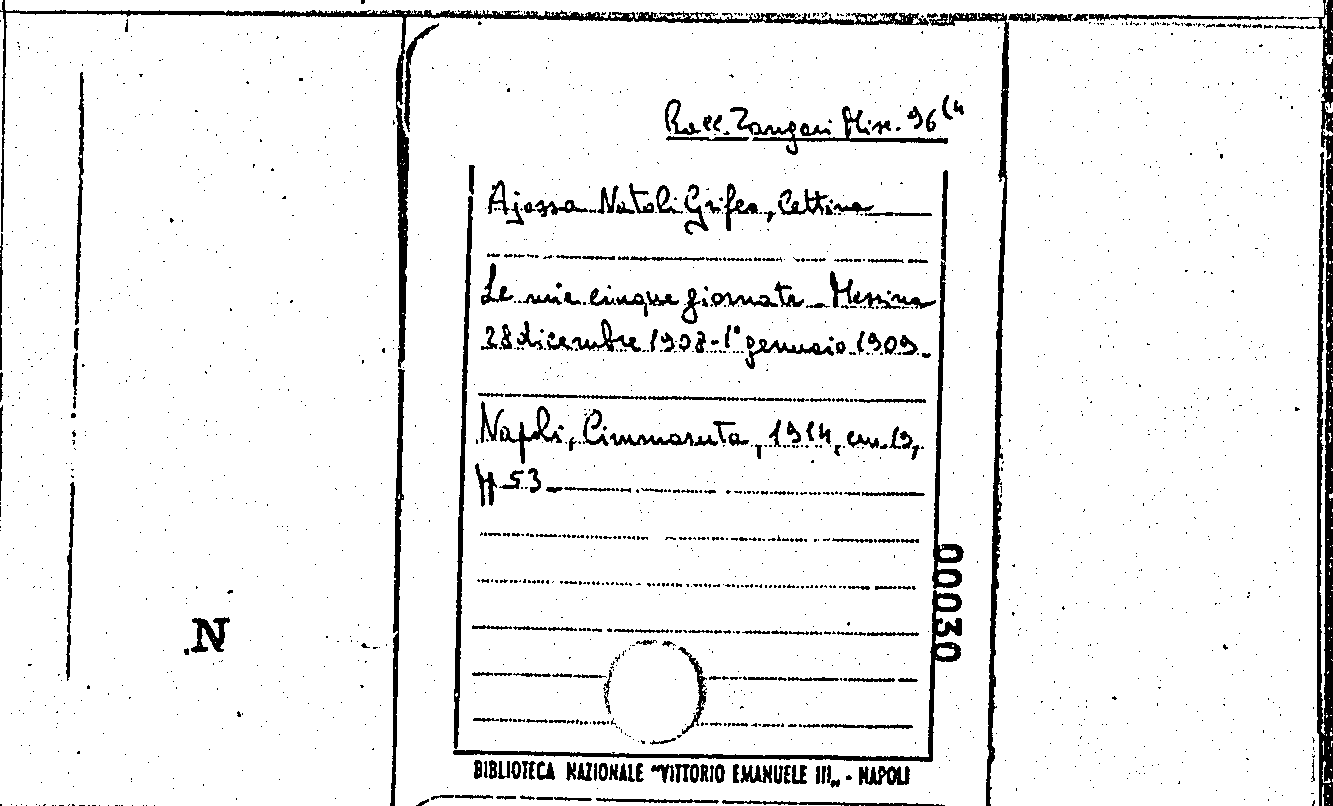 Racc. Zangari Misc. 96(4
Ajossa Natoli Grifeo, Cettina
Le mie cinque giornate - Messina
28 dicembre 1908-1° gennaio 1909.
Napoli, Cimmaruta, 1914, cm. 19,
pp 53
00030
N
BIBLIOTECA NAZIONALE "VITTORIO EMANUELE III„ - NAPOLI